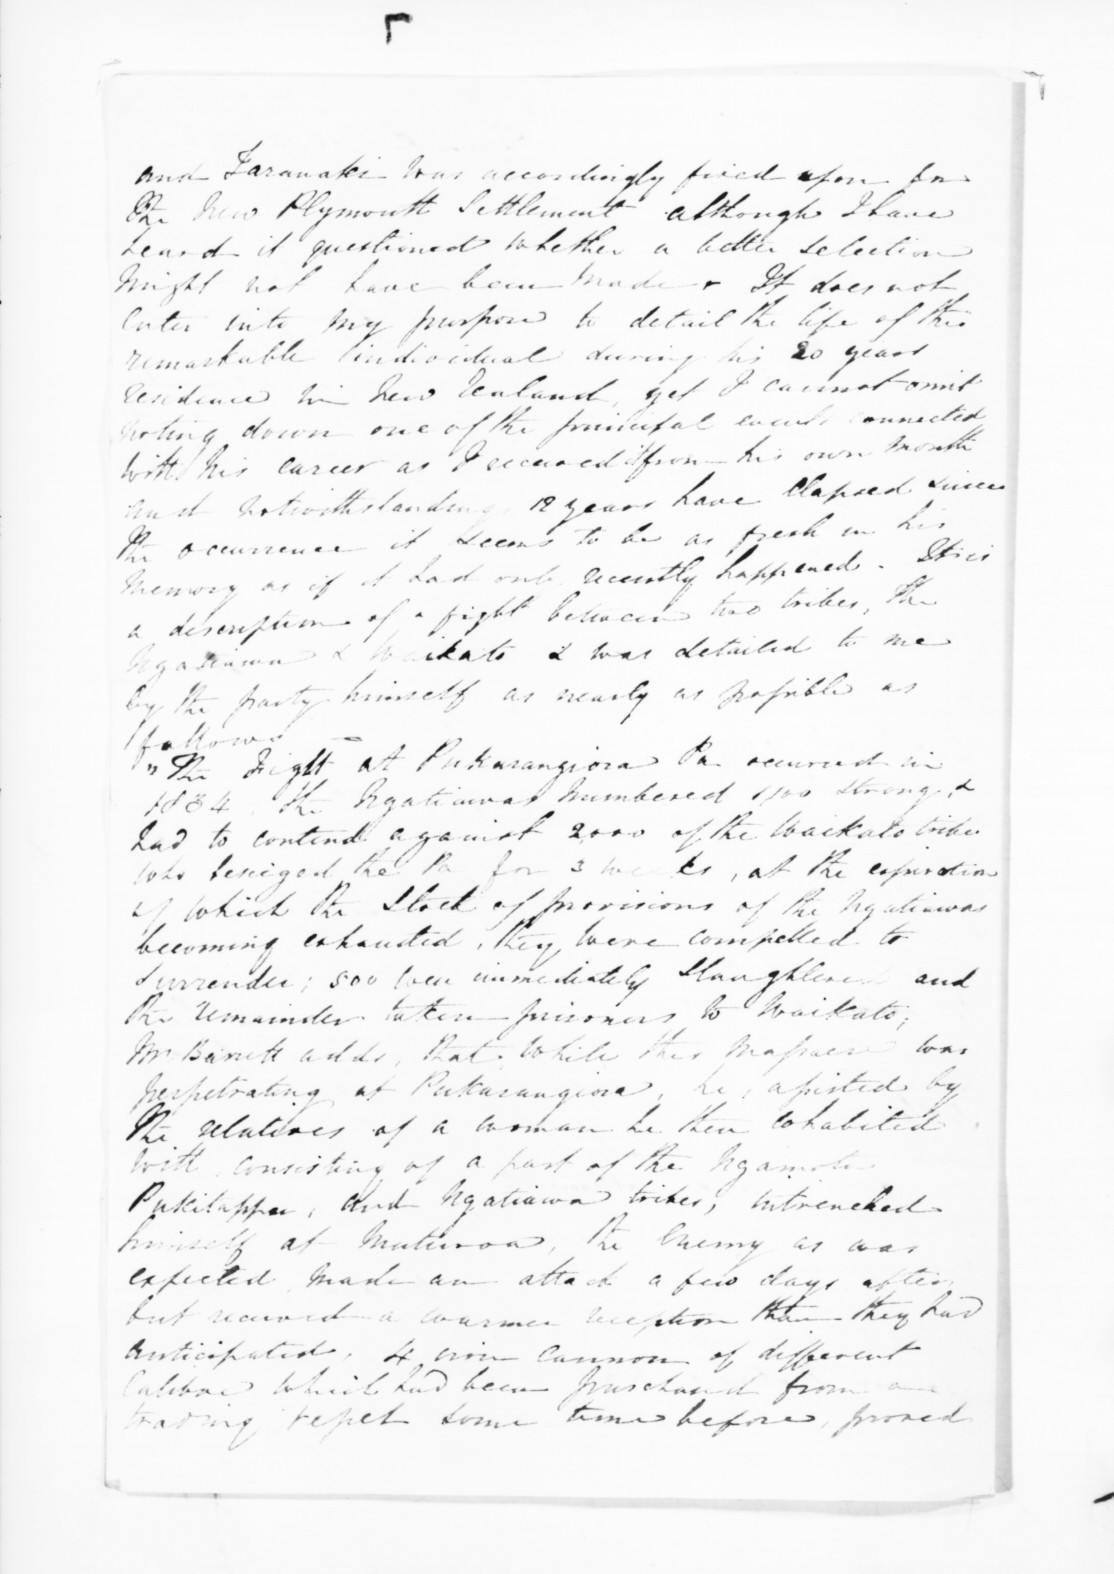 and Taranaki was accordingly fixed upon for
the New Plymouth Settlement although I have
heard it questioned whether a better selection
might not have been made. It does not
enter into my purpose to detail the life of this
remarkable individual during his 20 years
residence in New Zealand, yet I cannot omit
noting down one of the principal events connected
with his career as I received it from his own mouth
and notwithstanding 12 years have elapsed since
the occurrence it seems to be as fresh in his
memory as if it had only recently happened. It is
a description of a fight between two tribes, the
Ngatiawa & Waikato & was detailed to me
by the party himself as nearly as possible as
follows —
"The Fight at Pukarangiora Pa occurred in
1834. The Ngatiawas numbered strong, &
had to contend against 2000 of the Waikato tribe
who besieged the Pa for 3 weeks, at the expiration
of which the stock of provisions of the Ngatiawas
becoming exhausted, they were compelled to
surrender; 500 were immediately slaughtered and
the remainder taken prisoners to Waikato;
Mr Barrett adds, that while this massacre was
perpetrating at Pukarangiora, he, assisted by
the relatives of a woman he then cohabited
with consisting of a part of the Ngamotu
Pukitappu, and Ngatiawa tribes, intrenched
himself at Muturoa, the Enemy as was
expected made an attack a few days after
but received a warmer reception than they had
anticipated, 4 iron cannon of different
Calibre which had been purchased from a
trading vessel some time before, proved